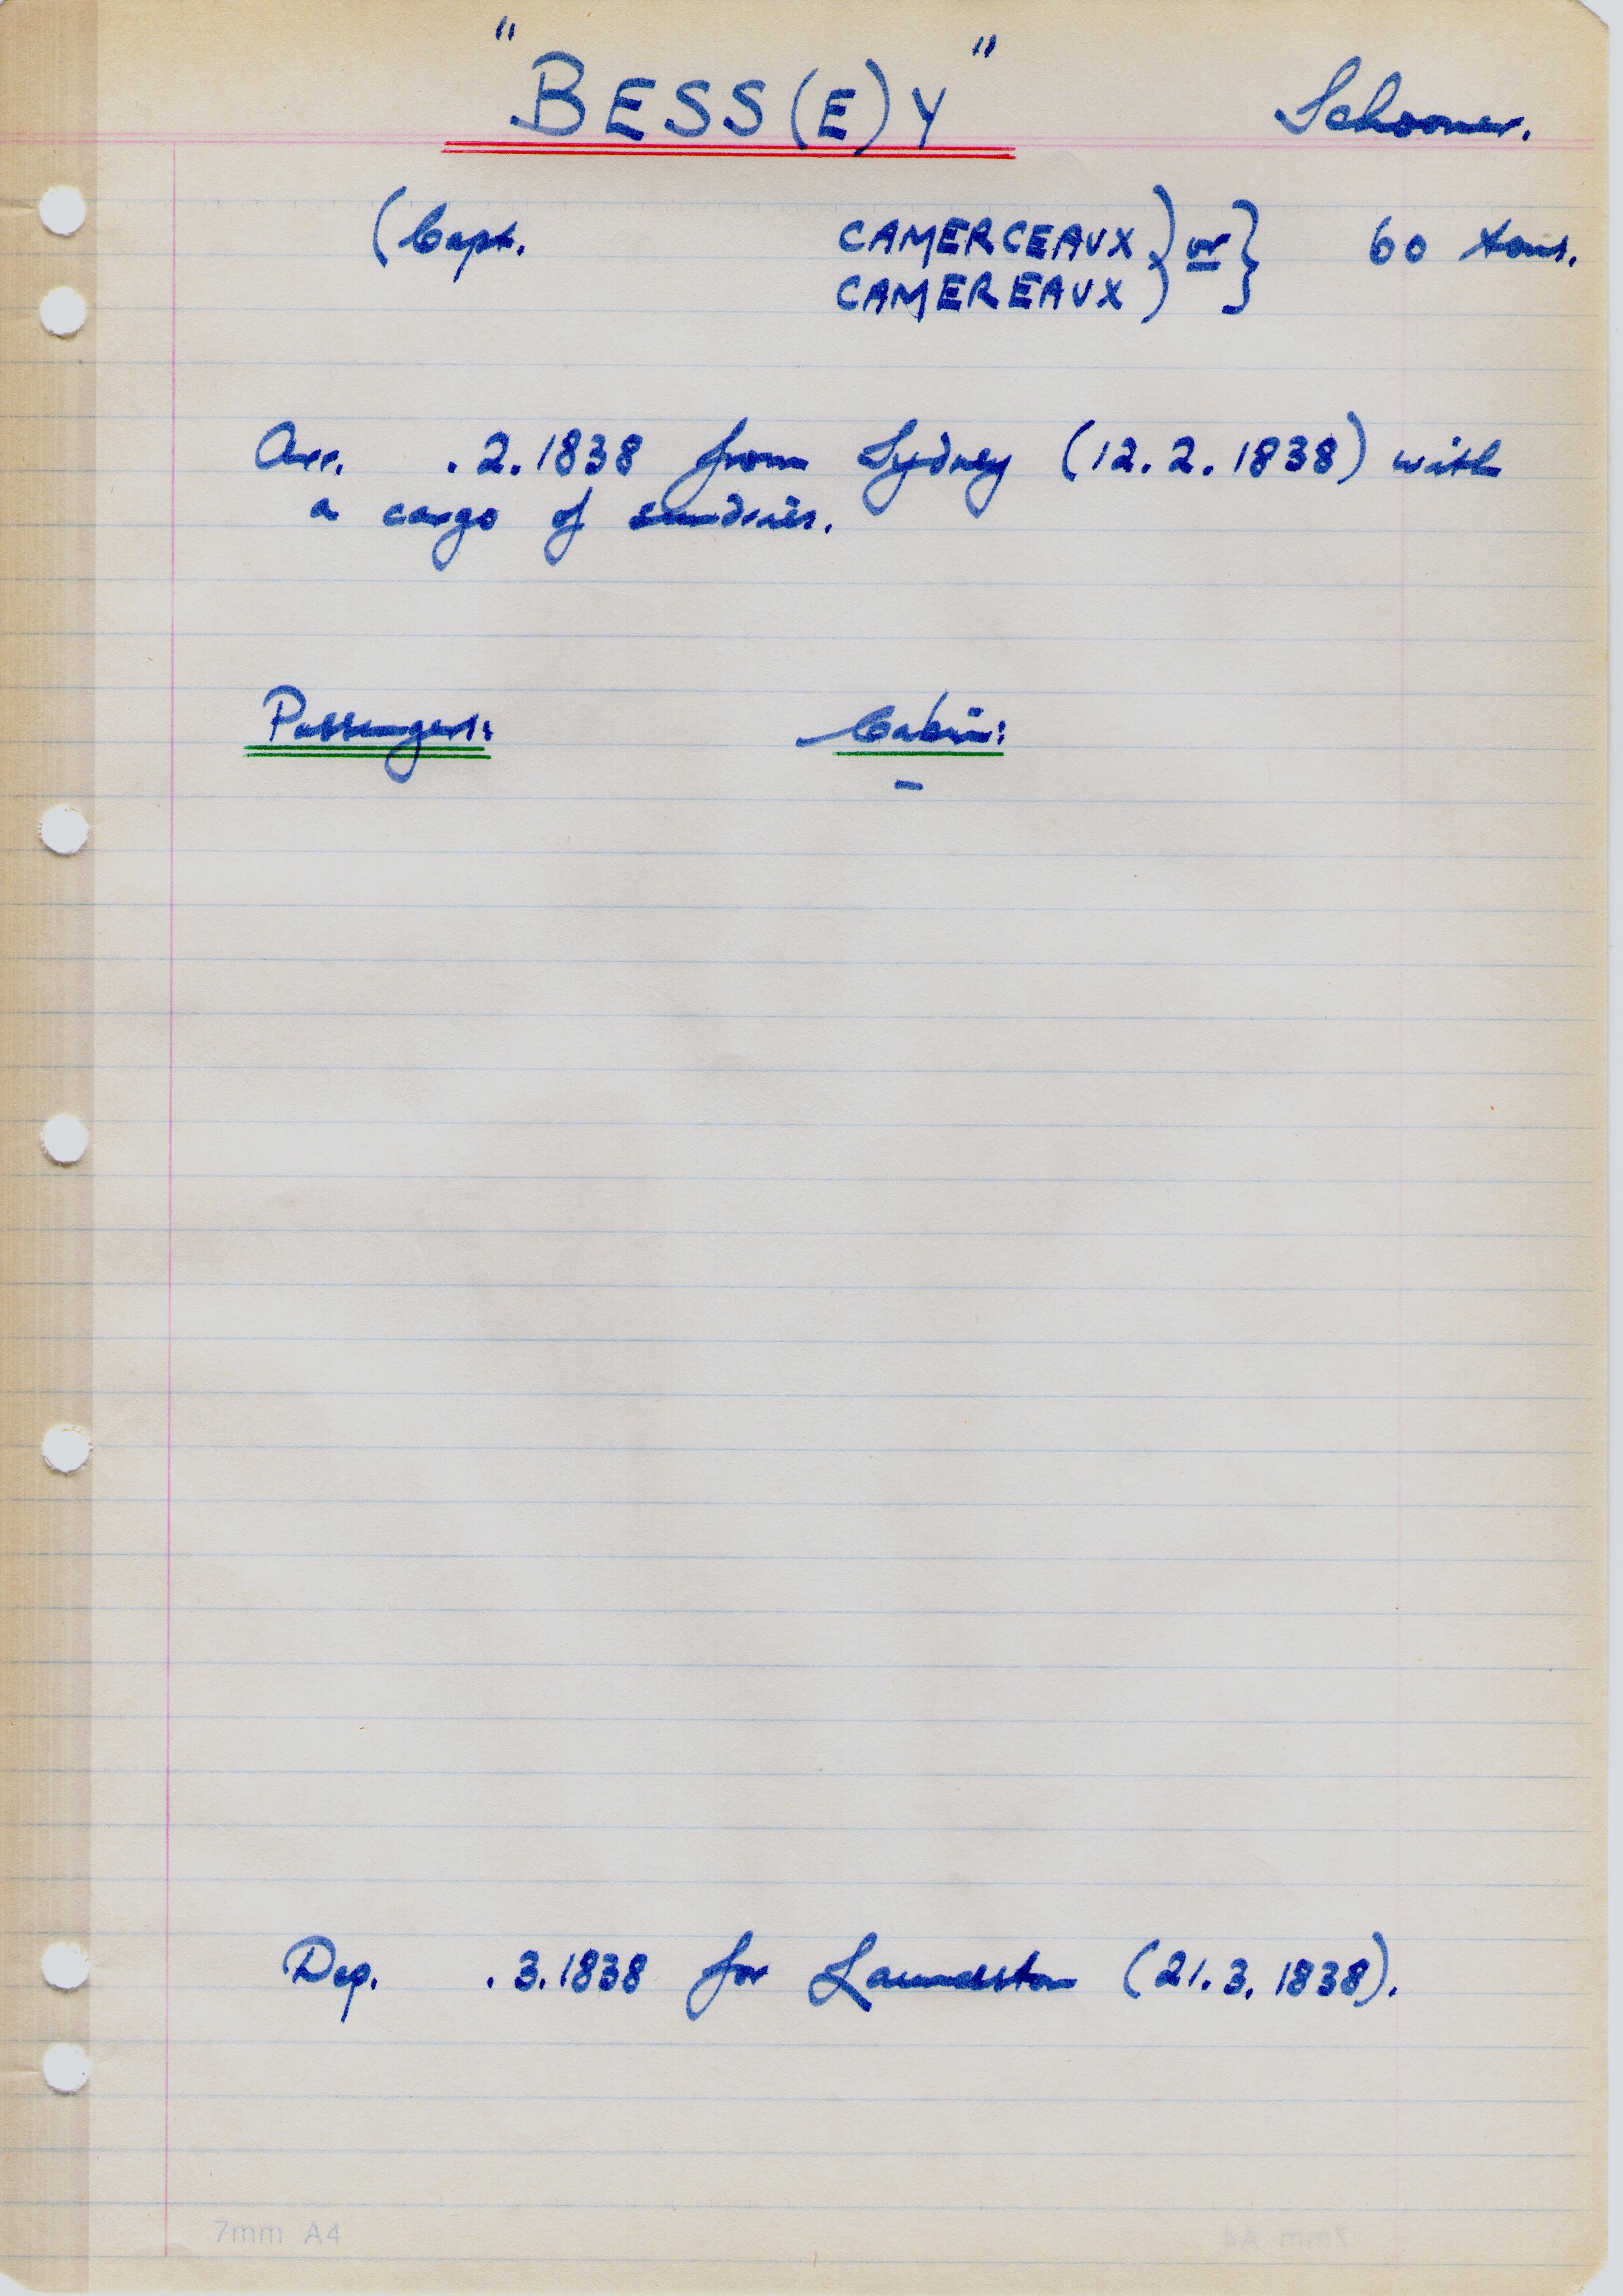 "BESS(E)Y" Schooner.
(Capt. CAMERCEAUX) or } 60 tons.
CAMEREAUX)
Arr. .2.1838 from Sydney (12.2.1838) with
a cargo of sundries.
Passengers: Cabin:
-
Dep. .3.1838 for Launceston (21.3.1838).
7mm A4